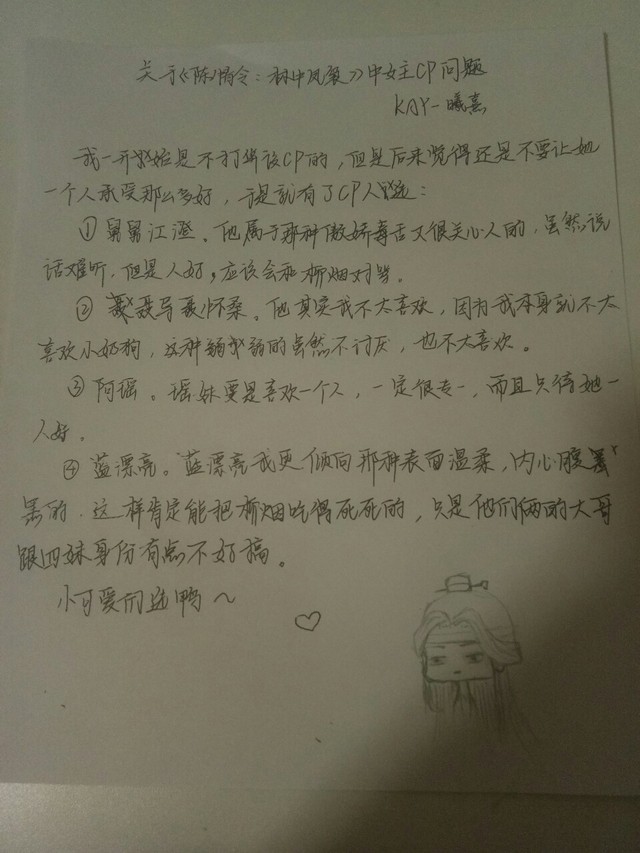 关于《陈情令:林中风袅》中女主CP问题
KAY-曦熹
我一开始是不打算设CP的,但是后来觉得还是不要让她
一个人承受那么多好,于是就有了CP人选:
①舅舅江澄。他属于那种傲娇毒舌又很关心人的,虽然说
话难听,但是人好,应该会和柳烟对坐。
②聂导聂怀桑。他其实我不太喜欢,因为我本身就不太
喜欢小奶狗,这种弱弱的虽然不讨厌,也不太喜欢。
③阿瑶。瑶妹要是喜欢一个人,一定很专一,而且只待她一
人好。
④蓝漂亮。蓝漂亮我更倾向那种表面温柔,内心腹
黑的。这样肯定能把柳烟吃得死死的,只是他们俩的大哥
跟四妹身份有点不好搞。
小可爱们选鸭~